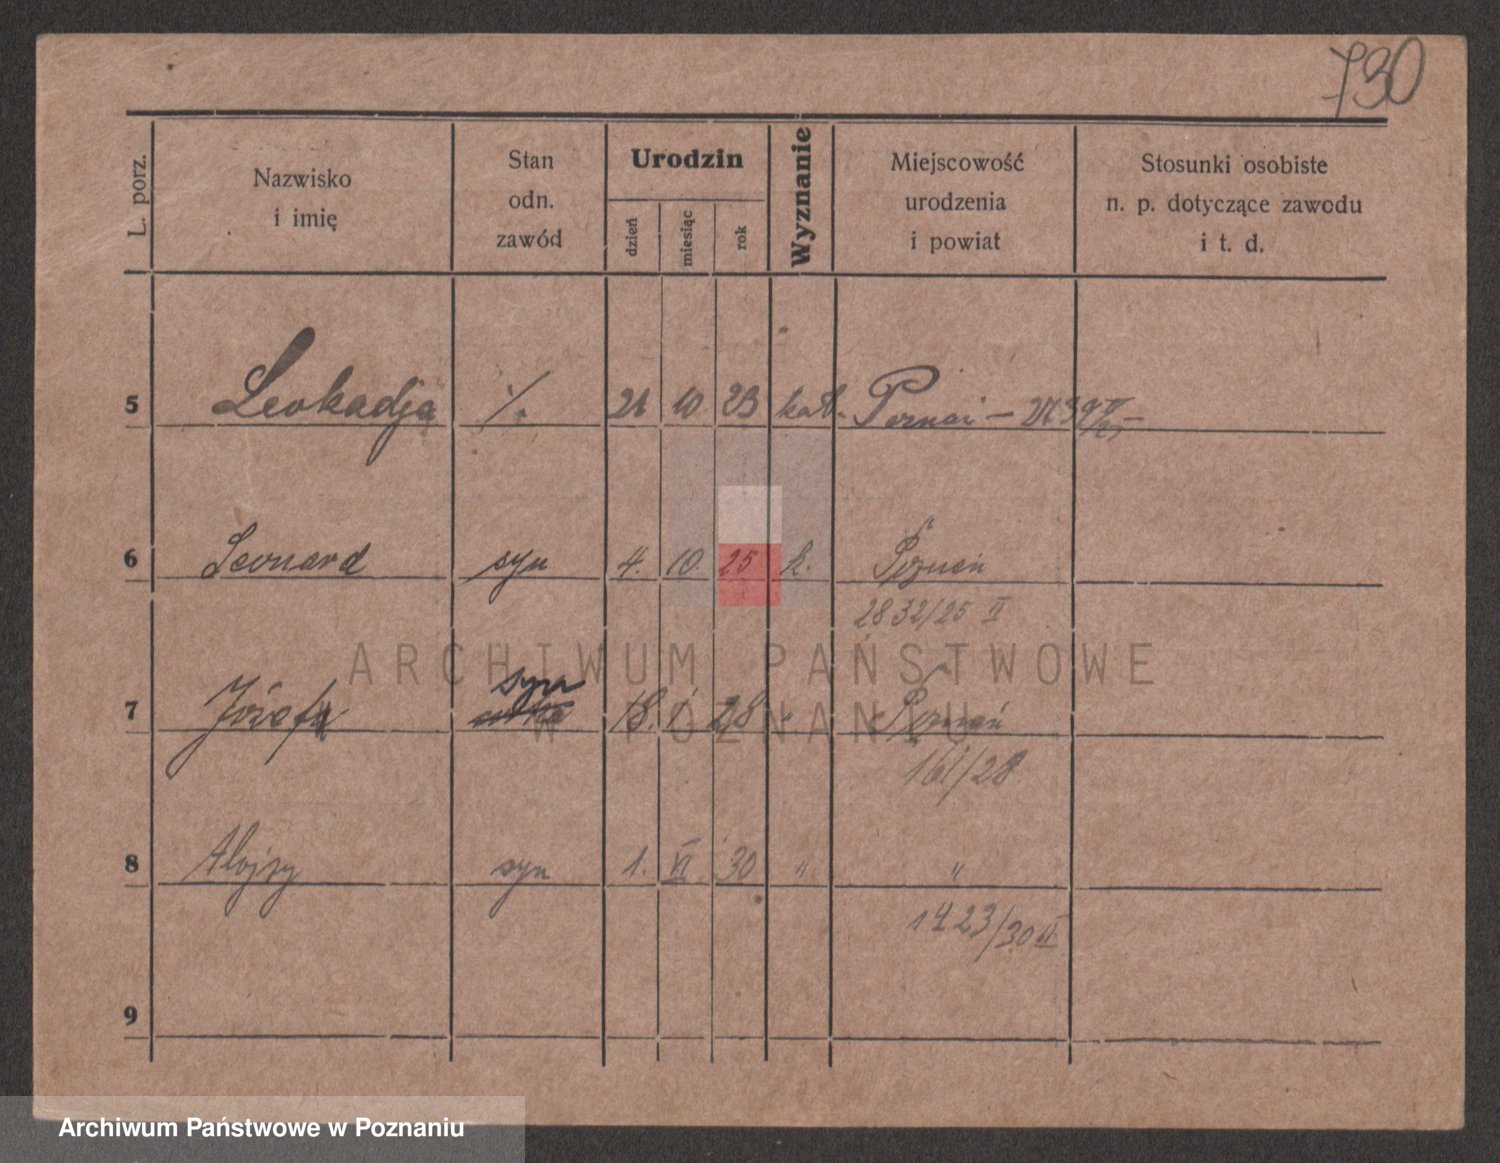 730
L. porz.
Nazwisko
i imię
Stan
odn.
zawód
Urodzin
dzień
miesiąc
rok
Wyznanie
Miejscowość
urodzenia
i powiat
Stosunki osobiste
n. p. dotyczące zawodu
i t. d.
5 Leokadja 21 10 23 kat.
6 Leonard syn 4. 10. 25 k. Poznań
2832/25 II
syn
7 Józef 18. 1. 28 Poznań
161/28
8 Alojzy syn 1. VI 30 " "
1423/30 II
9
ARCHIWUM PAŃSTWOWE
W POZNANIU
Archiwum Państwowe w Poznaniu